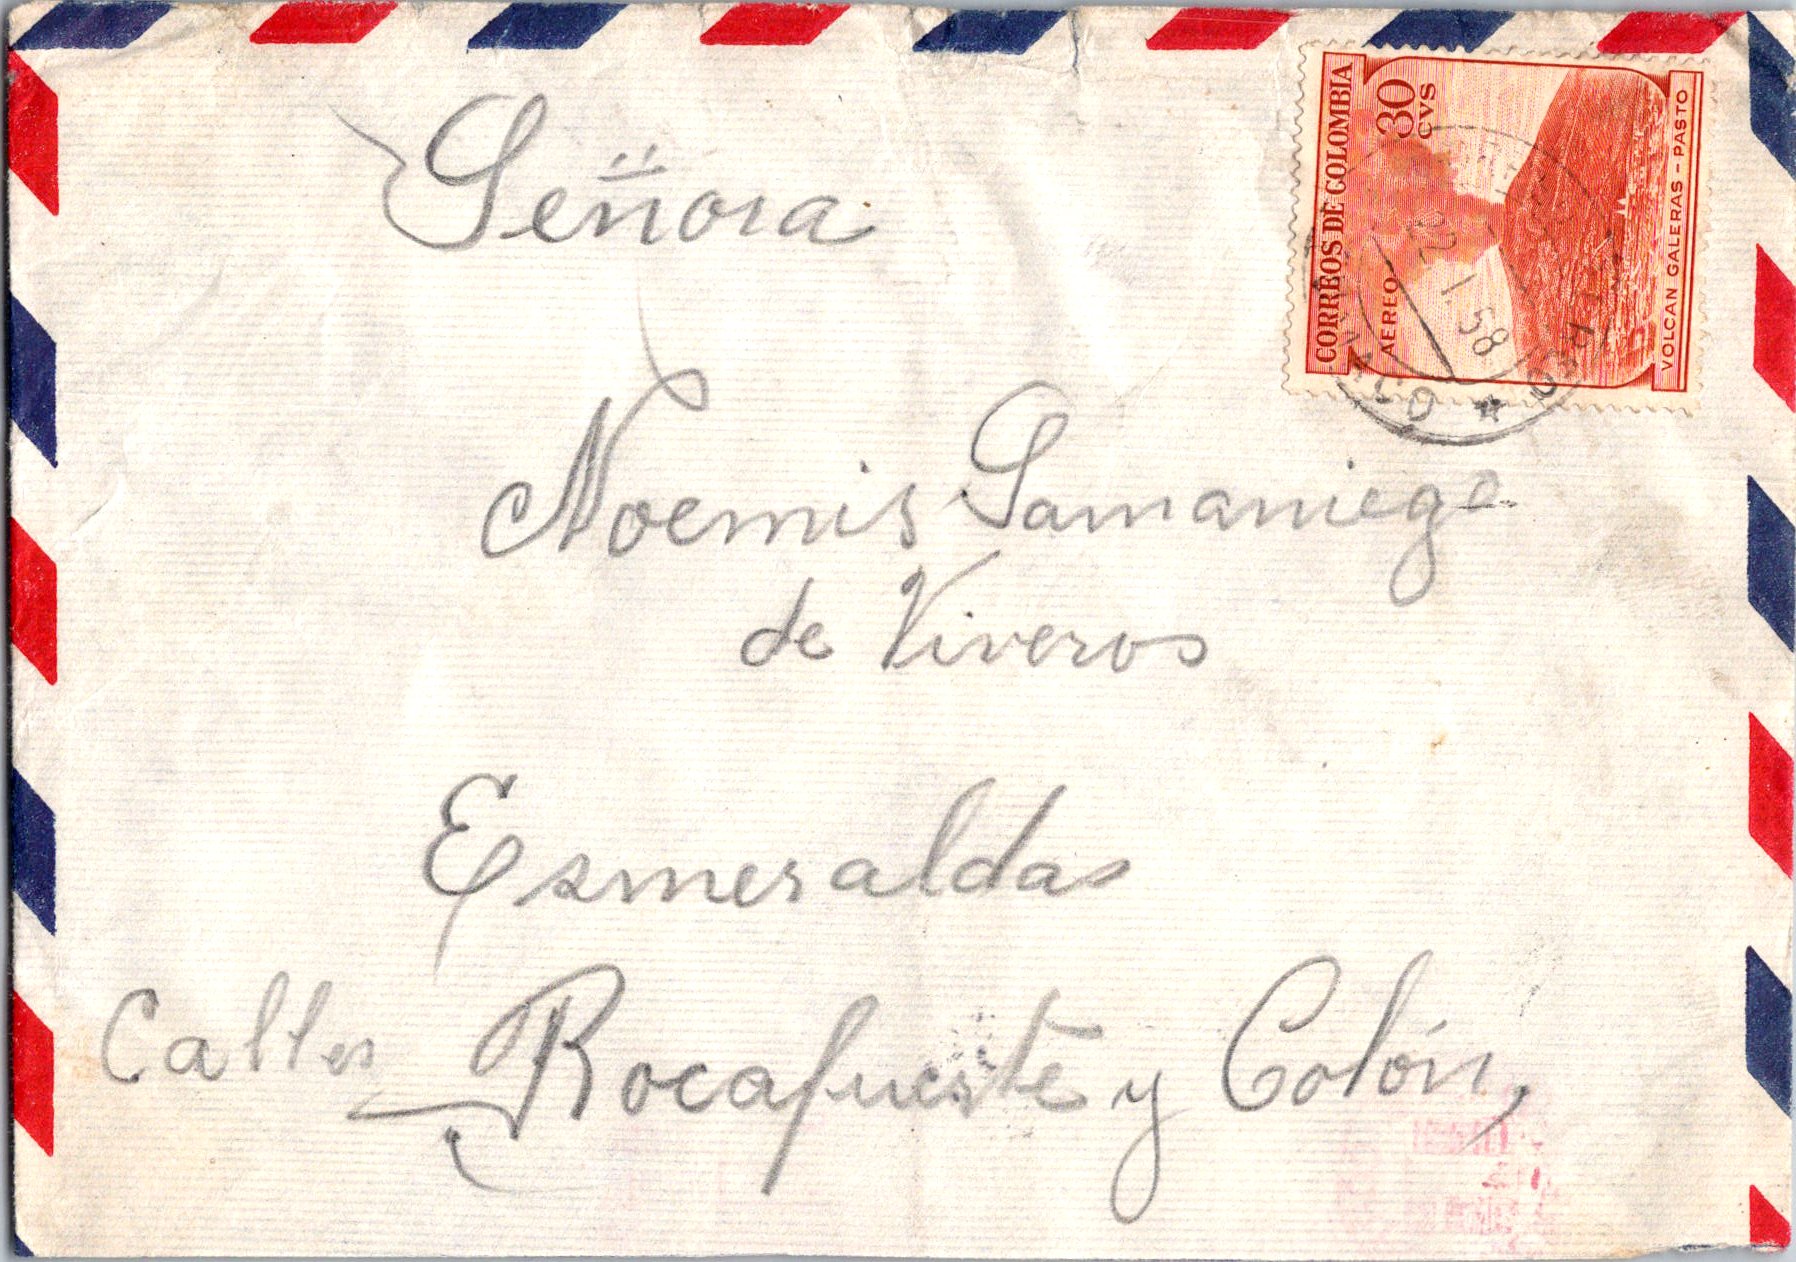 Señora
Noemis Samaniego
de Viveros
Esmeraldas
Calles Rocafuerte y Colón,
CORREOS DE COLOMBIA
AEREO
30
CVS
VOLCAN GALERAS - PASTO
22 . I . 58